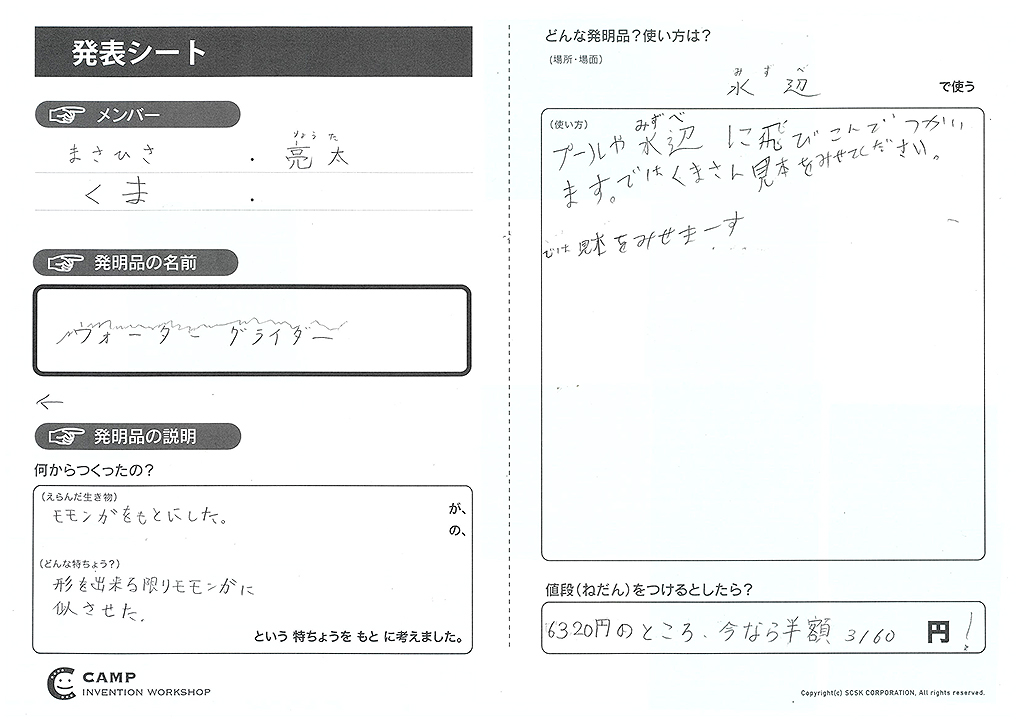 発表シート
メンバー
まさひさ ・ 亮太
りょう た
くま ・
発明品の名前
ウォーターグライダー
←
発明品の説明
何からつくったの？
（えらんだ生き物）
モモンガをもとにした。
が、
の、
（どんな特ちょう？）
形を出来る限りモモンガに
似させた.
という 特ちょうを もと に考えました。
CAMP
INVENTION WORKSHOP
どんな発明品？使い方は？
（場所・場面）
みずべ
水辺 で使う
（使い方）
みずべ
プールや水辺に飛びこんでつかい
ます。ではくまさん見本をみせてください。
では見本をみせまーす
値段（ねだん）をつけるとしたら？
6320円のところ、今なら半額 3160 円！
Copyright(c) SCSK CORPORATION, All rights reserved.